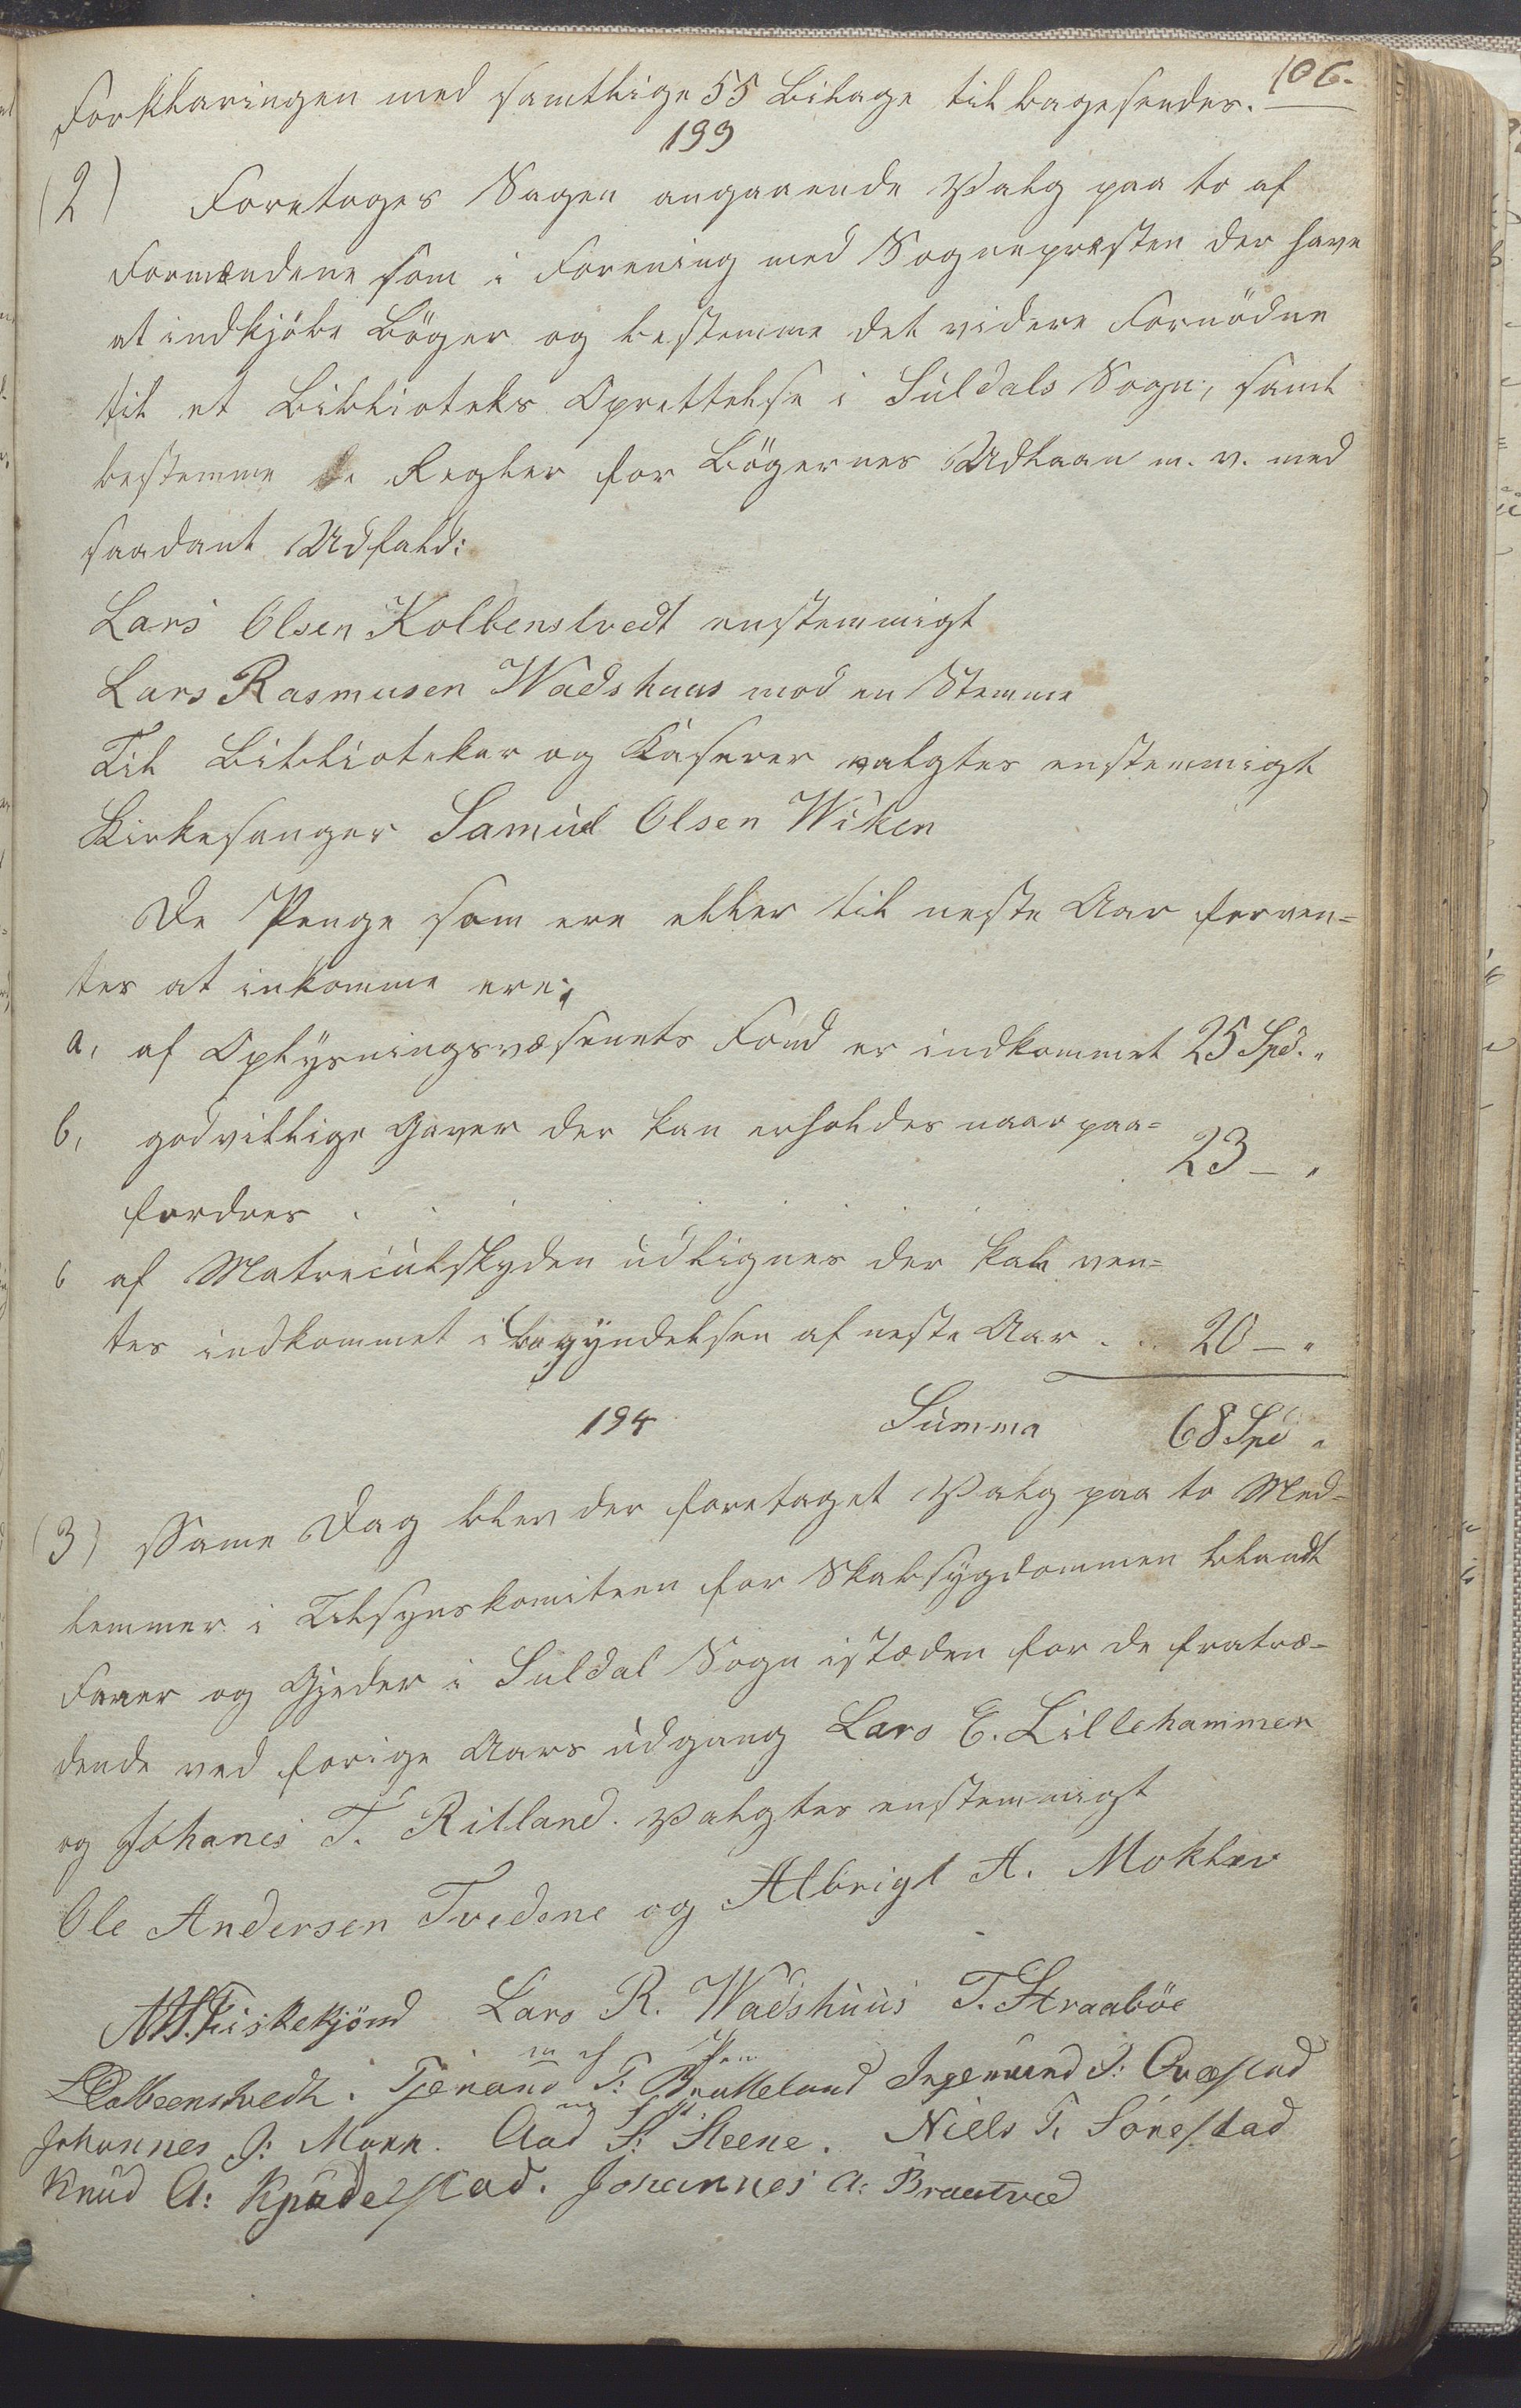 106.
Forklaringen med samtlige 55 Bilage tilbagesendes.
199
(2) Foretoges Sagen angaaende Valg paa to af
Formændene som i Forening med Sognepræsten der have
at indkjöbe Böger og bestemme det videre Fornödne
til et Biblioteks Oprettelse i Suldals Sogn, samt
bestemme de Regler for Bögernes Udlaan m. v. med
saadant Udfald:
Lars Olsen Kolbenstvedt enstemmigt
Lars Rasmusen Wadshuus mod en Stemme
Til Bibliotekar og Kaserer valgtes enstemmigt
Kirkesanger Samuel Olsen Wiken
De Penge som ere eller til neste Aar forven=
tes at inkomme ere:
a, af Oplysningsvæsenets Fond er indkommet 25 Spd. "
b, godvillige Gaver der kan erholdes naar paa=
fordres . . . 23 — "
c af Matriculskylden udlignes der kan ven=
tes indkommet i Begyndelsen af neste Aar . . 20 — "
194 Summa 68 Spd "
(3) Same Dag blev der foretaget Valg paa to Med=
lemmer i Tilsynskomiteen for Skabsygdommen blandt
Faaer og Gjeder i Suldal Sogn istæden for de fratræ=
dende ved forige Aars udgang Lars E. Lillehammer
og Johanes T. Ritland. Valgtes enstemmigt
Ole Andersen Tvedene og Albrigt A. Moklev
Fiskekjönd Lars R. Wadshuus T. Straaböe
LOKolbeenstvedt. Tjerand T: Bratteland Ingemund S: Qvæstad
m. f. Pen
Johannes J: Moen. Aad S: Steene. Niels T. Sönestad
Knud A: Kjødelstad. Johannes A: Brautved